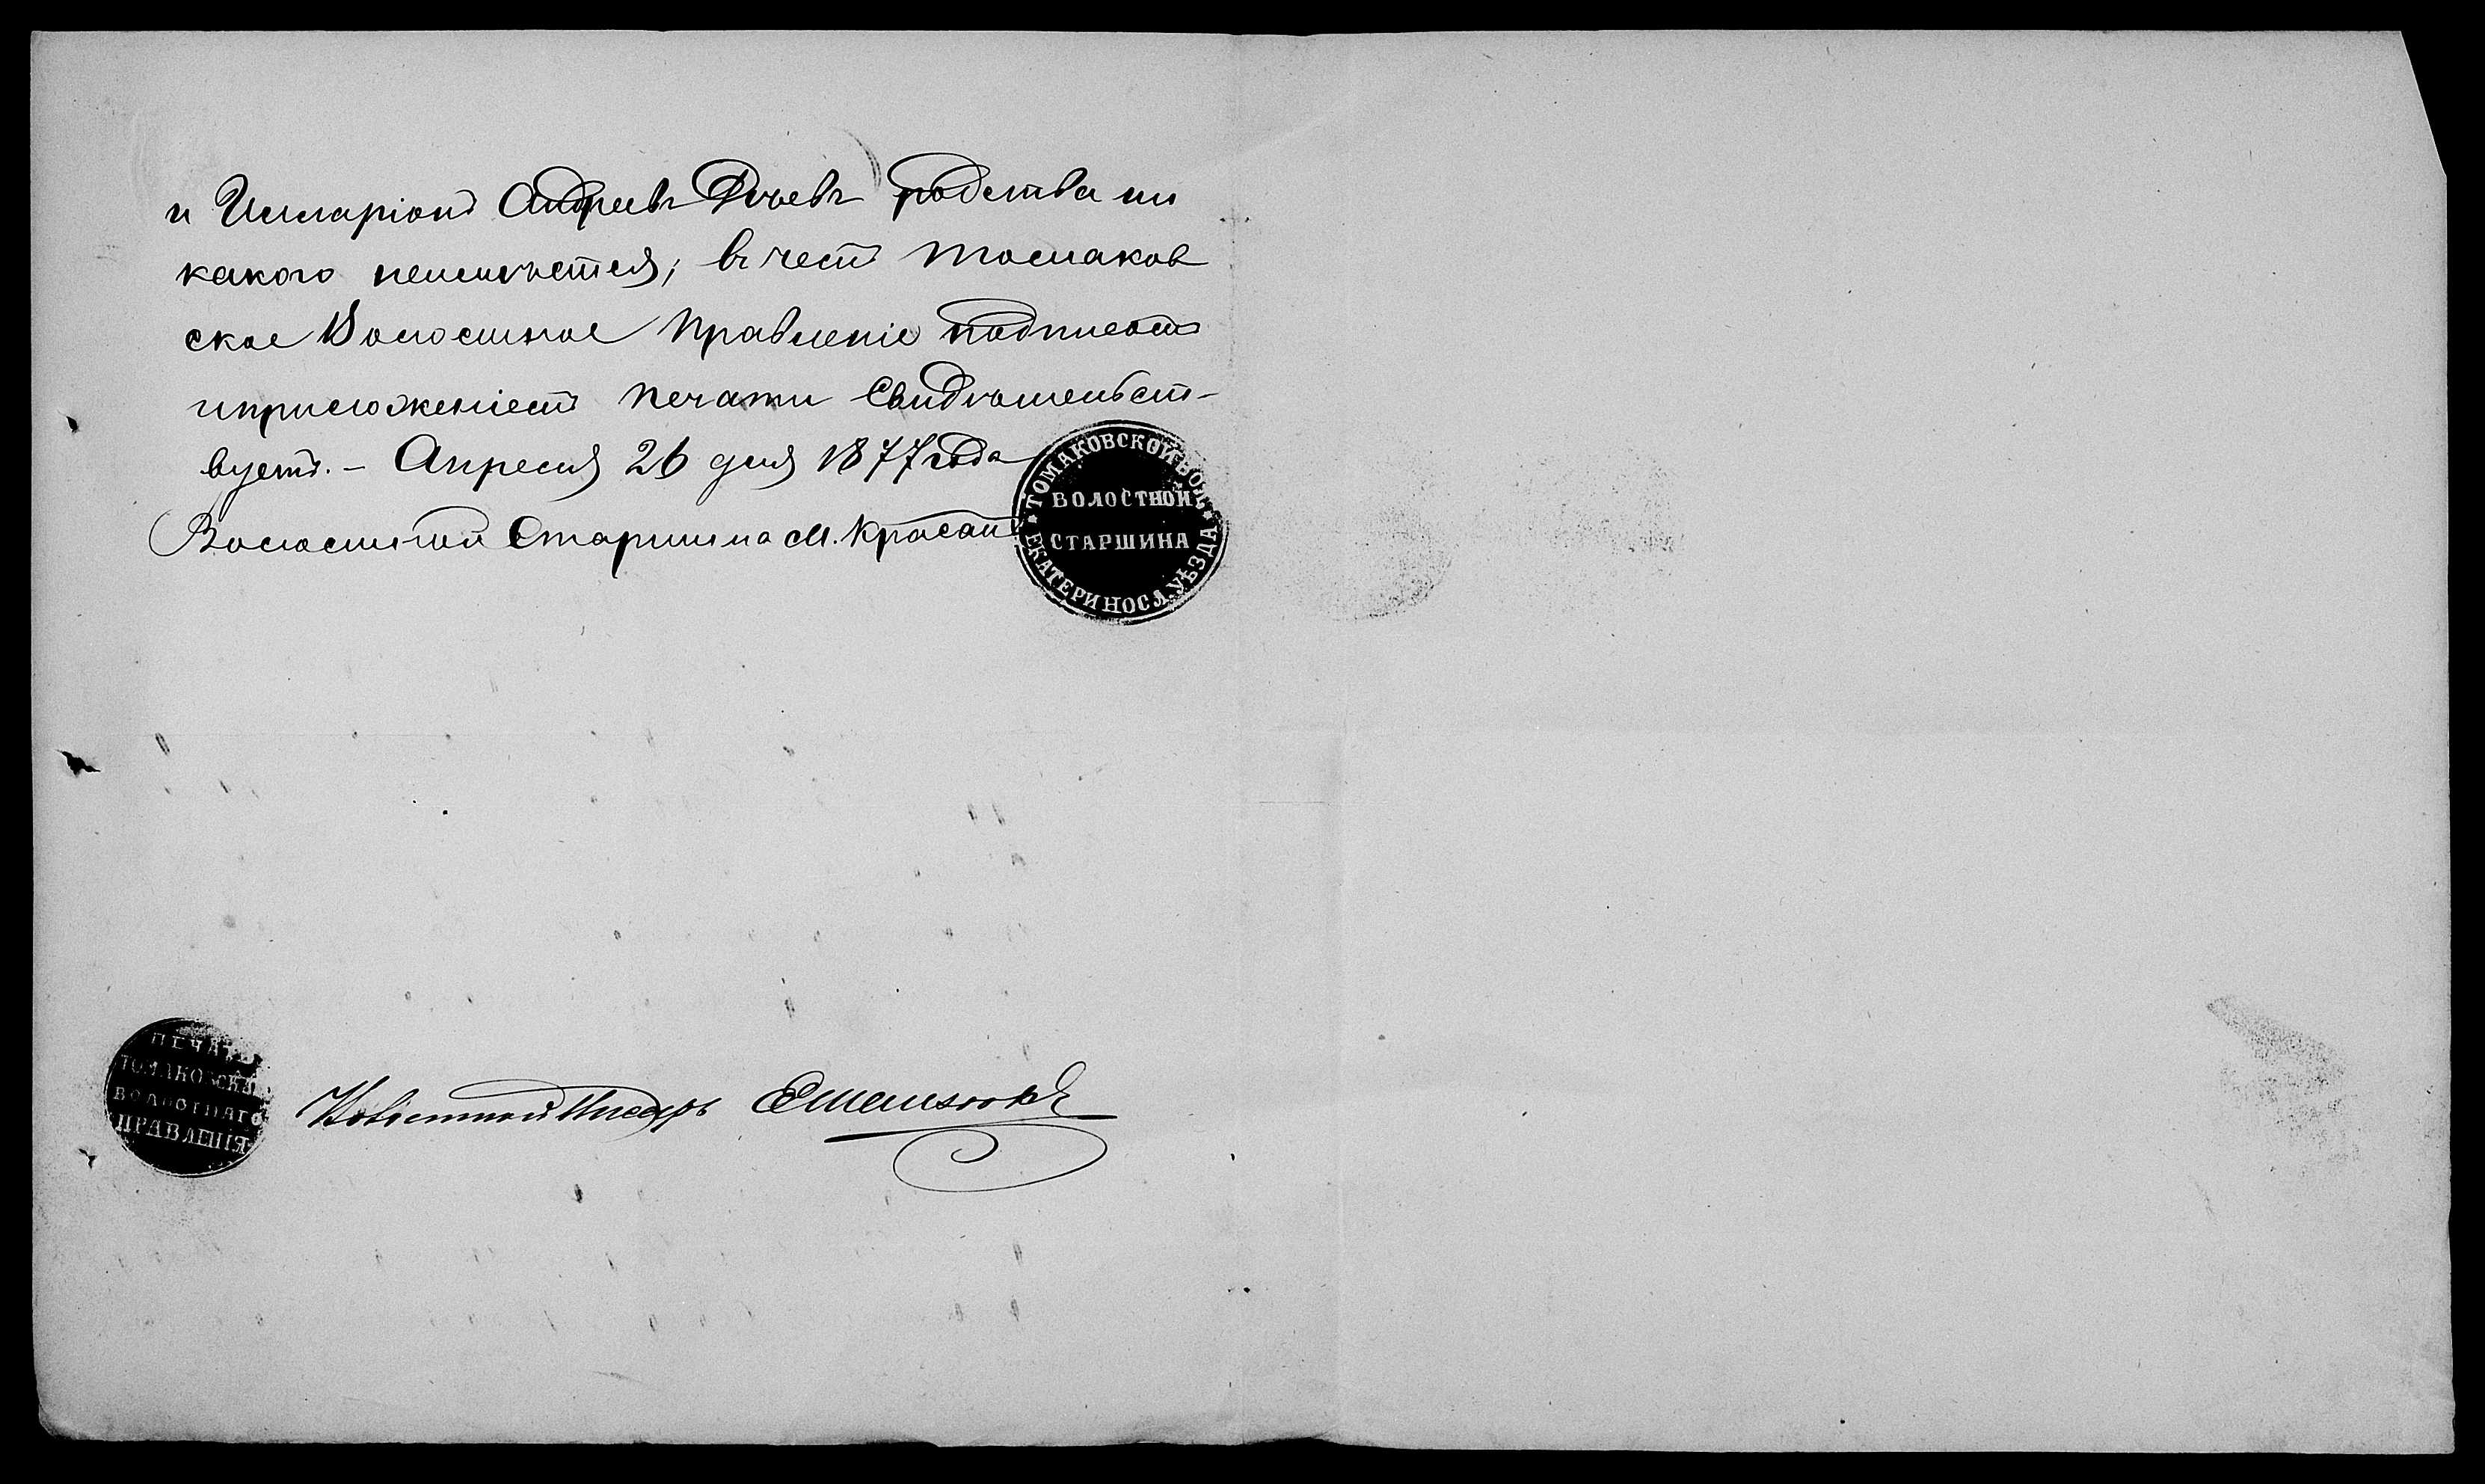 и Илларіонъ Андреевъ родства ни
какого неимѣется; въ чемъ Томаков
ское Волостное Правленіе подписомъ
иприложеніемъ печати Свидѣтельст-
вуетъ. - Апреля 26 дня 1877 года
Волостной Старшина М. Красан
ТОМАКОВСКОЙ ВОЛ.
ВОЛОСТНОЙ
СТАРШИНА
ЕКАТЕРИНОСЛ. УѢЗДА
ПЕЧАТЬ
ТОМАКОВСКА
ВОЛОСТНАГО
ПРАВЛЕНІЯ
Волостной Писарь